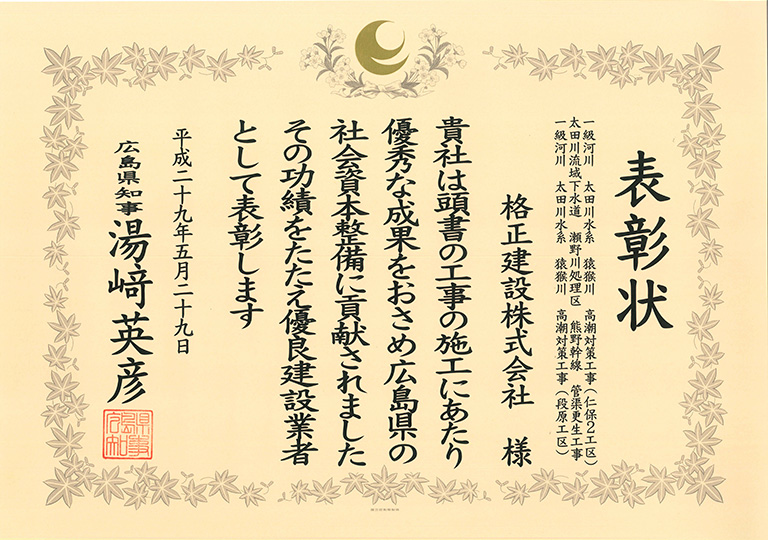 表彰状
一級河川 太田川水系 猿猴川 高潮対策工事(仁保2工区)
太田川流域下水道 瀬野川処理区 熊野幹線 管渠更生工事
一級河川 太田川水系 猿猴川 高潮対策工事(段原工区)
格正建設株式会社 様
貴社は頭書の工事の施工にあたり
優秀な成果をおさめ広島県の
社会資本整備に貢献されました
その功績をたたえ優良建設業者
として表彰します
平成二十九年五月二十九日
広島県知事 湯﨑英彦
広島県知事